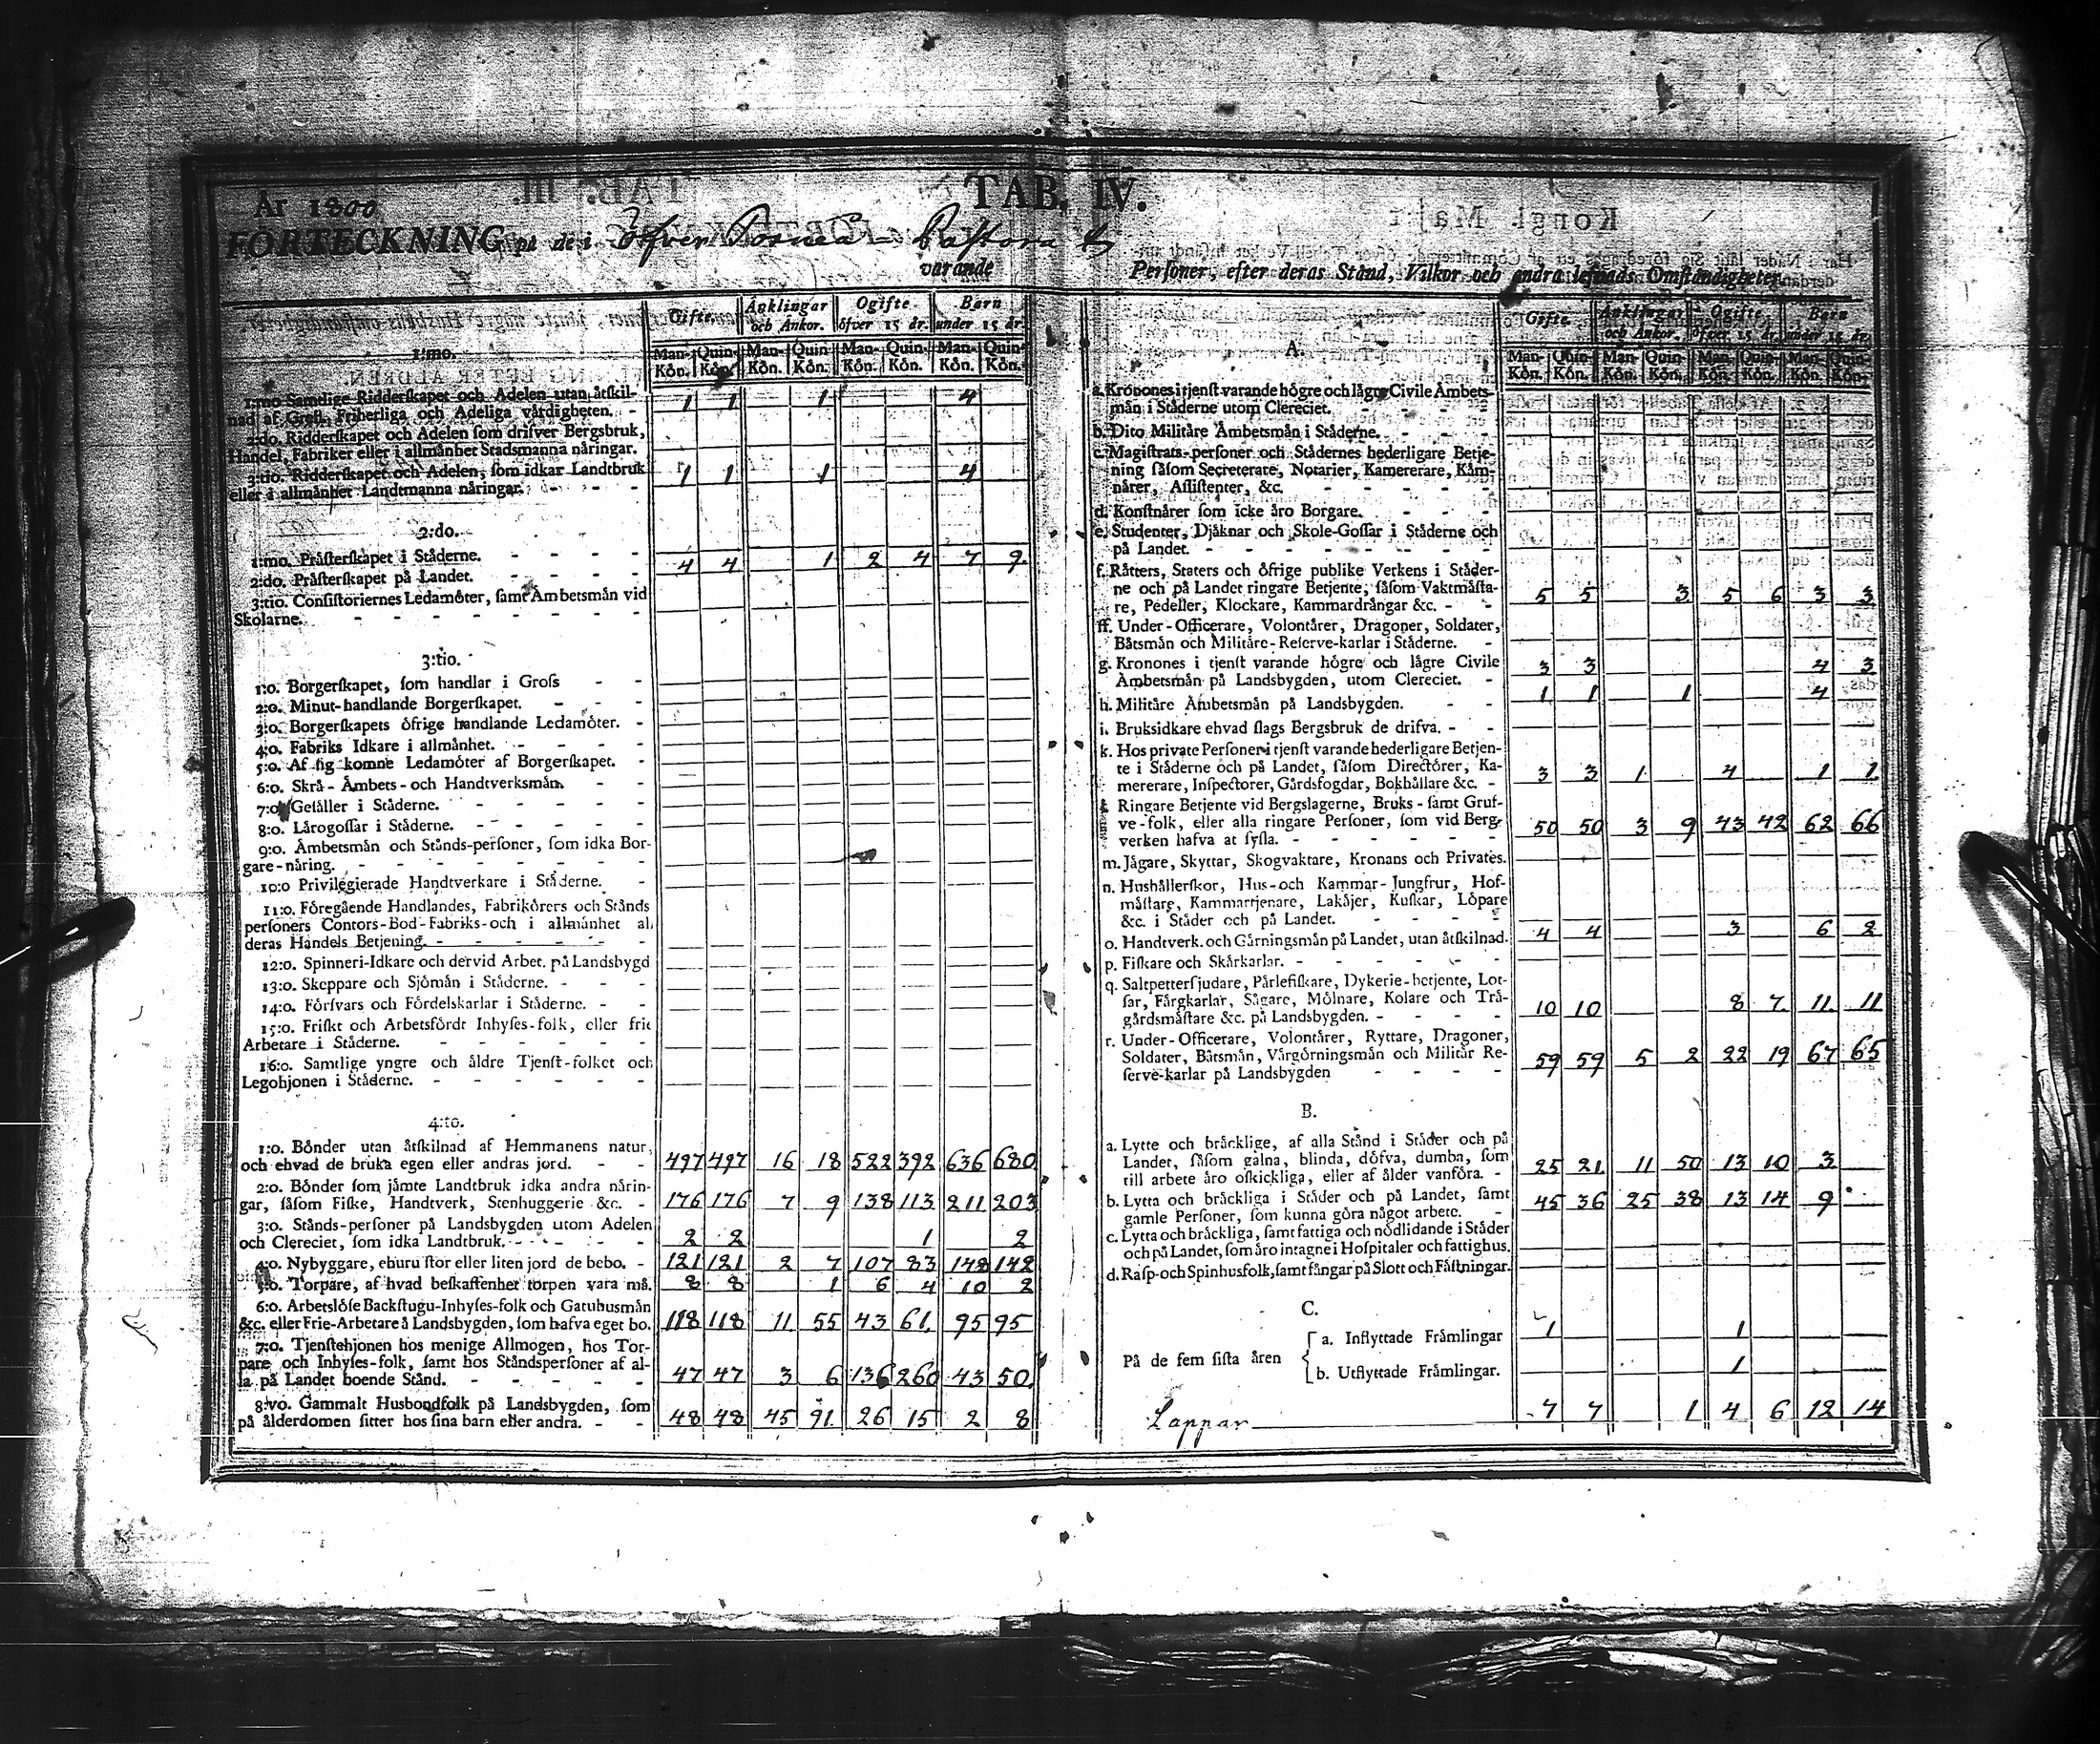 TAB. IV.
År 1800
FÖRTECKNING på de i Öfver Torneå Pastorat
varande Perſoner, efter deras Stånd, Vilkor och andra lefnads Omſtåndigheter.
Gifte. Ånklingar och Ånkor. Ogifte öfver 15 år. Barn under 15 år.
Man-Kön. Quin-Kön. Man-Kön. Quin-Kön. Man-Kön. Quin-Kön. Man-Kön. Quin-Kön.
1:mo.
1:mo Samdlige Ridderſkapet och Adelen utan åtſkil-
nad af Grefl. Friherliga och Adeliga vårdigheten. - 1 1 1 4
2:do. Ridderſkapet och Adelen ſom drifver Bergsbruk,
Handel, Fabriker eller i allmånhet Stadsmanna nåringar.
3:tio. Ridderſkapet och Adelen, ſom idkar Landtbruk
eller i allmånhet Landtmanna nåringar. 1 1 1 4
2:do.
1:mo. Pråſterſkapet i Ståderne.
2:do. Pråſterſkapet på Landet. 4 4 1 2 4 7 9
3:tio. Conſiſtoriernes Ledamöter, ſamt Åmbetsmån vid
Skolarne.
3:tio.
1:o. Borgerſkapet, ſom handlar i Groſs
2:o. Minut-handlande Borgerſkapet.
3:o. Borgerſkapets öfrige handlande Ledamöter.
4:o. Fabriks Idkare i allmånhet.
5:o. Af ſig komne Ledamöter af Borgerſkapet.
6:o. Skrå-Åmbets-och Handtverksmån
7:o. Geſåller i Ståderne.
8:o. Lårogoſſar i Ståderne.
9:o. Åmbetsmån och Stånds-perſoner, ſom idka Bor-
gare-nåring.
10:o Privilegierade Handtverkare i Ståderne.
11:o. Föregående Handlandes, Fabrikörers och Stånds
perſoners Contors-Bod-Fabriks-och i allmånhet al
deras Handels Betjening.
12:o. Spinneri-Idkare och dervid Arbet. på Landsbygd
13:o. Skeppare och Sjömån i Ståderne.
14:o. Förſvars och Fördelskarlar i Ståderne.
15:o. Friſkt och Arbetsfördt Inhyſes-folk, eller frie
Arbetare i Ståderne.
16:o. Samtlige yngre och åldre Tjenſt-folket och
Legohjonen i Ståderne.
4:to.
1:o. Bönder utan åtſkilnad af Hemmanens natur,
och ehvad de bruka egen eller andras jord. 497 497 16 18 522 392 636 680
2:o. Bönder ſom jåmte Landtbruk idka andra nårin-
gar, ſåſom Fiſke, Handtverk, Stenhuggerie &c. 176 176 7 9 138 113 211 203
3:o. Stånds-perſoner på Landsbygden utom Adelen
och Clereciet, ſom idka Landtbruk. 2 2 1 2
4:o. Nybyggare, ehuru ſtor eller liten jord de bebo. 121 121 2 7 107 83 148 142
5:o. Torpare, af hvad beſkaffenhet torpen vara må. 8 8 1 6 4 10 2
6:o. Arbetslöſe Backſtugu-Inhyſes-folk och Gatuhusmån
&c. eller Frie-Arbetare å Landsbygden, ſom hafva eget bo. 118 118 11 55 43 61 95 95
7:o. Tjenſtehjonen hos menige Allmogen, hos Tor-
pare och Inhyſes-folk, ſamt hos Ståndsperſoner af al-
la på Landet boende Stånd. 47 47 3 6 136 260 43 50
8:vo. Gammalt Husbondfolk på Landsbygden, ſom
på ålderdomen ſitter hos ſina barn eller andra. 48 48 45 91 26 15 2 8
Gifte Ånklingar och Ånkor. Ogifte öfver 15 år. Barn under 15 år.
Man-Kön. Quin-Kön. Man-Kön. Quin-Kön. Man-Kön. Quin-Kön. Man-Kön. Quin-Kön.
A.
a. Kronones i tjenſt varande högre och lågre Civile Åmbets-
mån i Ståderne utom Clereciet.
b. Dito Militåre Åmbetsmån i Ståderne.
c. Magiſtrats-perſoner och Stådernes hederligare Betje-
ning ſåſom Secreterare, Notarier, Kamererare, Kåm-
nårer, Aſſiſtenter, &c.
d. Konſtnårer ſom icke åro Borgare.
e. Studenter, Djåknar och Skole-Goſſar i Ståderne och
på Landet.
f. Råtters, Staters och öfrige publike Verkens i Ståder-
ne och på Landet ringare Betjente, ſåſom Vaktmåſta-
re, Pedeller, Klockare, Kammardrångar &c. 5 5 3 5 6 3 3
ff. Under-Officerare, Volontårer, Dragoner, Soldater,
Båtsmån och Militåre-Reſerve-karlar i Ståderne.
g. Kronones i tjenſt varande högre och lågre Civile
Åmbetsmån på Landsbygden, utom Clereciet. 3 3 4 3
h. Militåre Åmbetsmån på Landsbygden. 1 1 1 4
i. Bruksidkare ehvad ſlags Bergsbruk de drifva.
k. Hos private Perſoner i tjenſt varande hederligare Betjen-
te i Ståderne och på Landet, ſåſom Directörer, Ka-
mererare, Inſpectorer, Gårdsfogdar, Bokhållare &c. 3 3 1 4 1 1
l. Ringare Betjente vid Bergslagerne, Bruks-ſamt Gruf-
ve-folk, eller alla ringare Perſoner, ſom vid Berg-
verken hafva at ſyſla. 50 50 3 9 43 42 62 66
m. Jågare, Skyttar, Skogvaktare, Kronans och Privates.
n. Hushållerſkor, Hus-och Kammar-Jungfrur, Hof-
måſtare, Kammartjenare, Lakåjer, Kuſkar, Löpare
&c. i Ståder och på Landet.
o. Handtverk. och Gårningsmån på Landet, utan åtſkilnad. 4 4 3 6 2
p. Fiſkare och Skårkarlar.
q. Saltpetterſjudare, Pårlefiſkare, Dykerie-betjente, Lot-
ſar, Fårgkarlar, Sågare, Mölnare, Kolare och Trå-
gårdsmåſtare &c. på Landsbygden. 10 10 8 7 11 11
r. Under-Officerare, Volontårer, Ryttare, Dragoner,
Soldater, Båtsmån, Vårgörningsmån och Militår Re-
ſerve-karlar på Landsbygden 59 59 5 2 22 19 67 65
B.
a. Lytte och bråcklige, af alla Stånd i Ståder och på
Landet, ſåſom galna, blinda, döfva, dumba, ſom
till arbete åro oſkickliga, eller af ålder vanföra. 25 21 11 50 13 10 3
b. Lytta och bråckliga i Ståder och på Landet, ſamt
gamle Perſoner, ſom kunna göra något arbete. 45 36 25 38 13 14 9
c. Lytta och bråckliga, ſamt fattiga och nödlidande i Ståder
och på Landet, ſom åro intagne i Hoſpitaler och fattighus.
d. Raſp-och Spinhusfolk, ſamt fångar på Slott och Fåſtningar.
C.
På de fem ſiſta åren
a. Inflyttade Fråmlingar 1 1
b. Utflyttade Fråmlingar. 1
Lappar 7 7 1 4 6 12 14